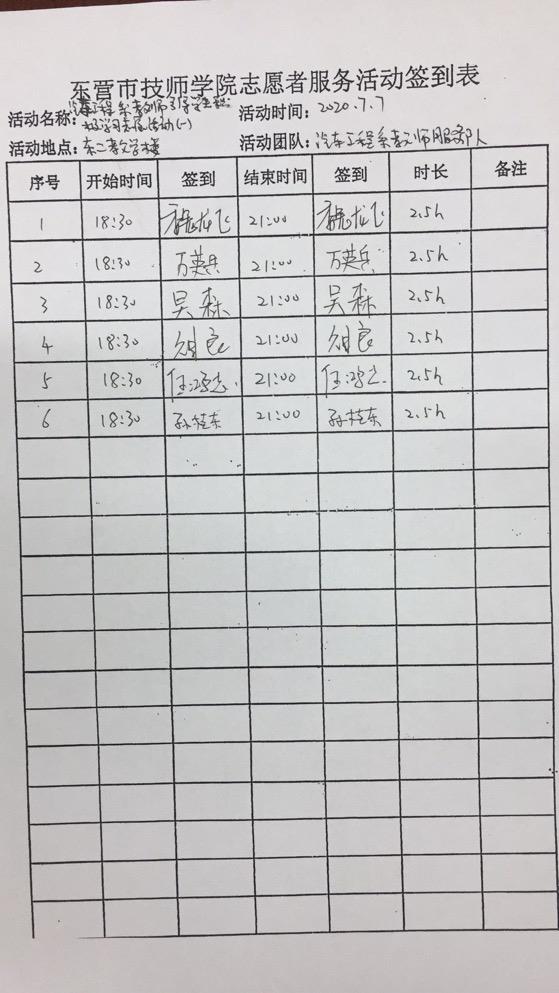 东营市技师学院志愿者服务活动签到表
活动名称：汽车工程系教师引导学生积
极学习志愿活动(一)
活动时间：2020.7.7
活动地点：东二教学楼
活动团队：汽车工程系教师服务队
序号 开始时间 签到 结束时间 签到 时长 备注
1 18:30 21:00 2.5h
2 18:30 万英兵 21:00 万英兵 2.5h
3 18:30 吴森 21:00 吴森 2.5h
4 18:30 21:00 2.5h
5 18:30 21:00 2.5h
6 18:30 孙桂东 21:00 孙桂东 2.5h